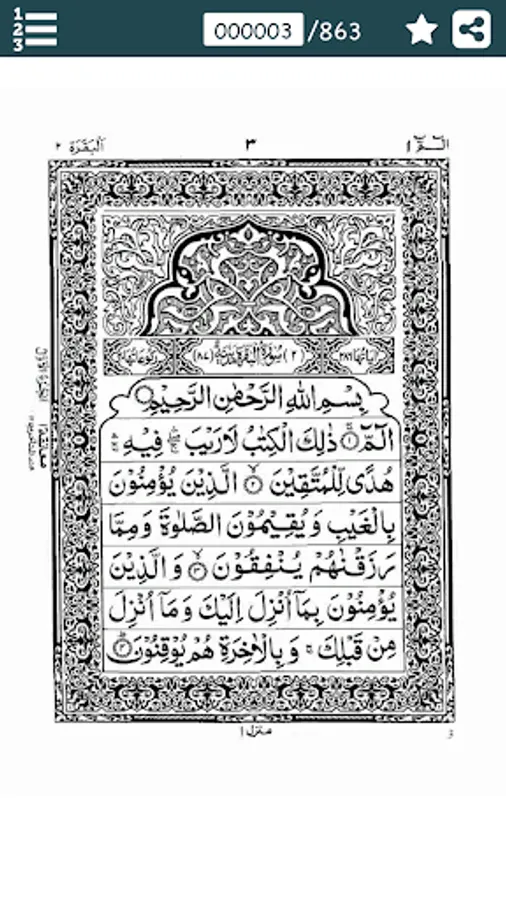 1
2
3
000003 /863
الٓمّٓ ١
٣
اَلْبَقَرَة ٢
اٰيَاتُهَا ٢٨٦
(٢) سُوْرَةُ الْبَقَرَةِ مَدَنِيَّةٌ (٨٧)
رُكُوْعَاتُهَا
بِسْمِ اللهِ الرَّحْمٰنِ الرَّحِيْمِ
الٓمّٓ ۚ ١ ذٰلِكَ الْكِتٰبُ لَا رَيْبَ ۛ فِيْهِ ۛ
هُدًى لِّلْمُتَّقِيْنَ ۙ ٢ الَّذِيْنَ يُؤْمِنُوْنَ
بِالْغَيْبِ وَيُقِيْمُوْنَ الصَّلٰوةَ وَمِمَّا
رَزَقْنٰهُمْ يُنْفِقُوْنَ ۙ ٣ وَالَّذِيْنَ
يُؤْمِنُوْنَ بِمَآ اُنْزِلَ اِلَيْكَ وَمَآ اُنْزِلَ
مِنْ قَبْلِكَ ۚ وَبِالْاٰخِرَةِ هُمْ يُوْقِنُوْنَ ؕ ٤
منزل ١
3